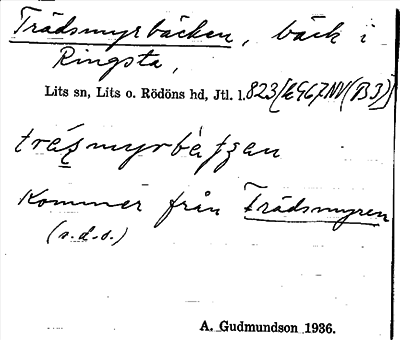 Trädsmyrbäcken, bäck i
Ringsta,
Lits sn, Lits o. Rödöns hd, Jtl. l. 823
tre᷄smyrbèt̯ʃan
Kommer från Trädsmyren
(s.d.o.)
A. Gudmundson 1936.